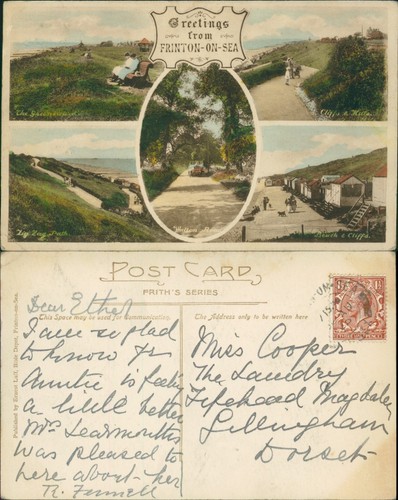 Greetings
from
FRINTON-ON-SEA
The Greensward
Cliffs & Hills
Zig Zag Path
Beach & Cliffs
POST CARD
FRITH'S SERIES
This Space may be used for Communication.
The Address only to be written here
Dear Ethel
I am so glad
to know yr
Auntie is feeling
a little better
Mrs Learmouths
was pleased to
here about her
R. Funnell
Miss Cooper
The Laundry
Fifehead Magdalen
Gillingham
Dorset